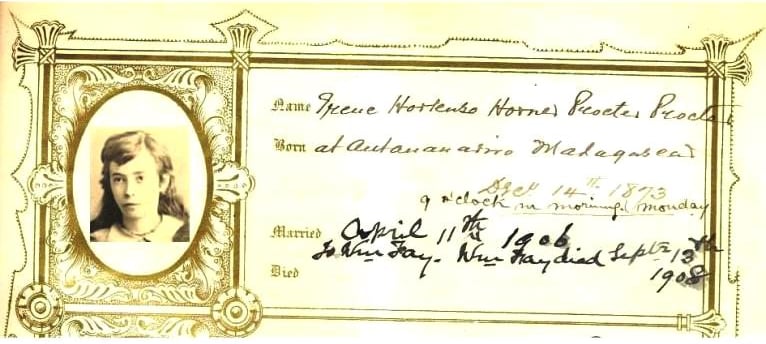 Name Irene Hortense Horner Procter Procter
Born at Antananarivo Madagascar
Dec 14th 1873
9 o'clock in morning (monday
Married April 11th 1906
to Wm Fay. Wm Fay died Septr 13th
Died
1908